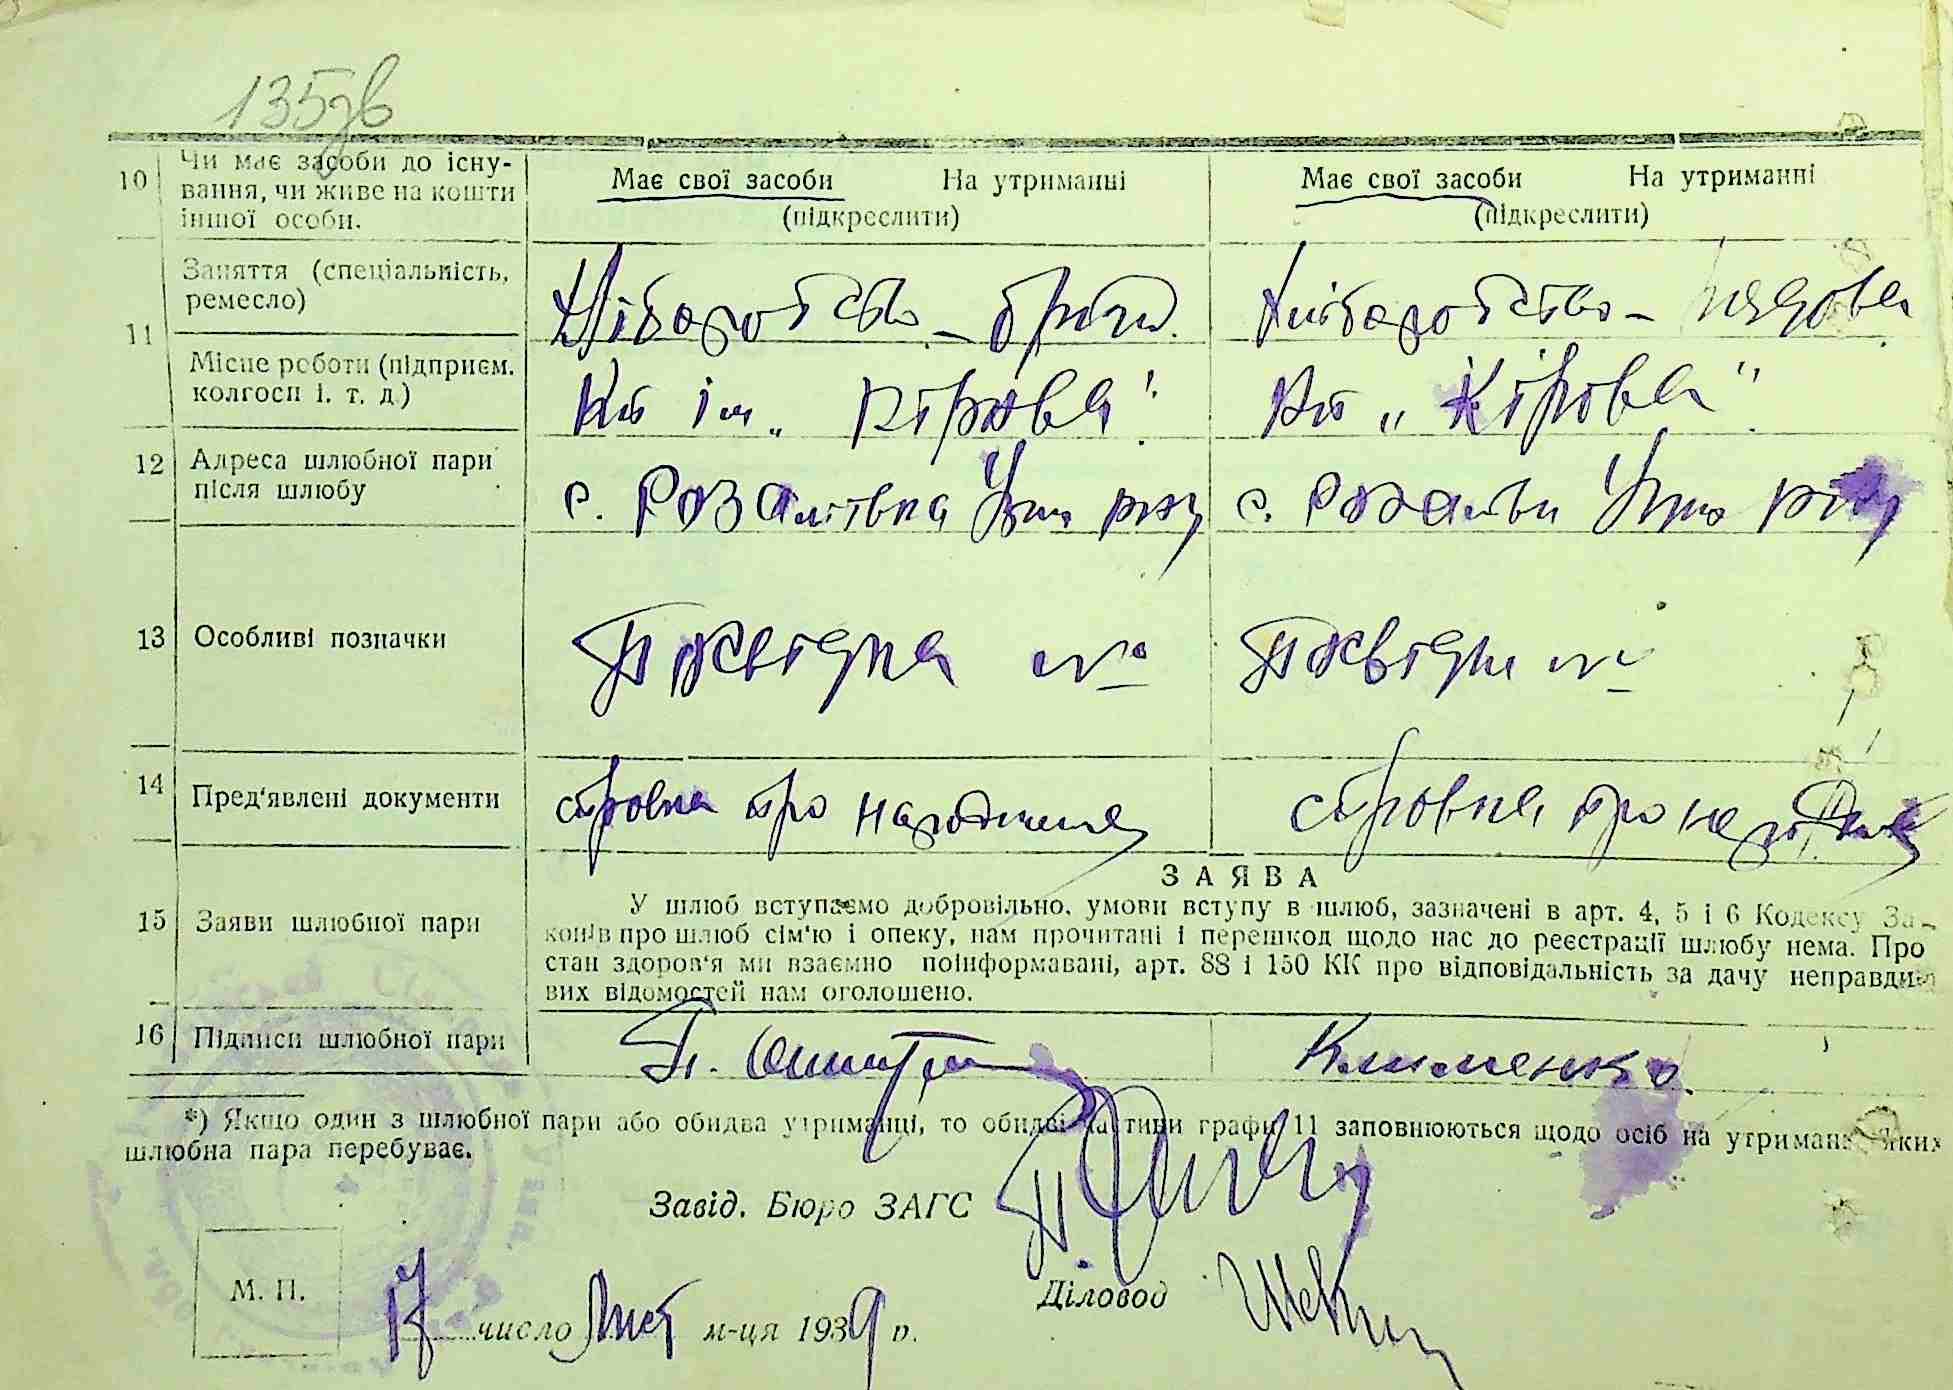 135зв
10 Чи має засоби до існу-
вання, чи живе на кошти
іншої особи.
Має свої засоби На утриманні
(підкреслити)
Має свої засоби На утриманні
(підкреслити)
11 Заняття (спеціальність,
ремесло)
Хліборобство –
Хліборобство – рядова
Місце роботи (підприєм.
колгосп і. т. д.)
К-п ім. „Кірова"
К-п „Кірова"
12 Адреса шлюбної пари
після шлюбу
с. Розаліївка
с.
13 Особливі позначки
Посвідка №
Посвідка №
14 Пред'явлені документи
справка про народження
справка про
15 Заяви шлюбної пари
ЗАЯВА
У шлюб вступаємо добровільно, умови вступу в шлюб, зазначені в арт. 4, 5 і 6 Кодексу За-
конів про шлюб сім'ю і опеку, нам прочитані і перешкод щодо нас до реєстрації шлюбу нема. Про
стан здоров'я ми взаємно поінформавані, арт. 88 і 150 КК про відповідальність за дачу неправди-
вих відомостей нам оголошено.
16 Підписи шлюбної пари
Клименко
*) Якщо один з шлюбної пари або обидва утриманці, то обидві частини графи 11 заповнюються щодо осіб на утриманні яких
шлюбна пара перебуває.
Завід. Бюро ЗАГС
М. П.
Діловод
число Лют м-ця 1939 р.